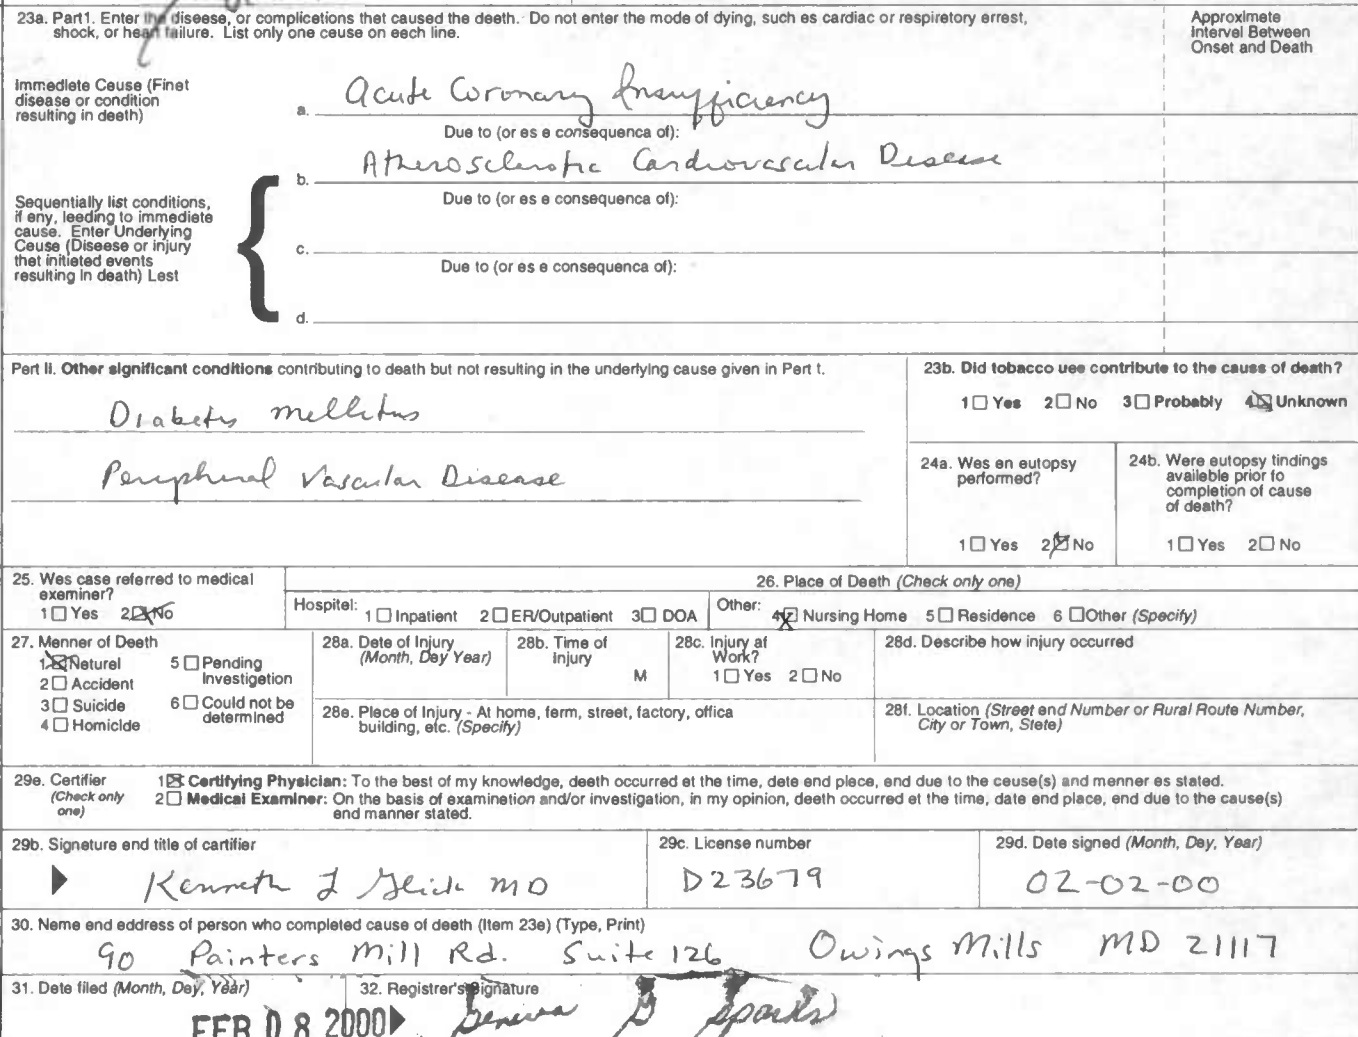 23a. Part1. Enter the diseese, or complicetions that caused the deeth. Do not enter the mode of dying, such es cardiac or respiretory errest,
shock, or heart failure. List only one ceuse on eech line.
Approximete
Interval Between
Onset and Death
Immediete Ceuse (Finet
disease or condition
resulting in death)
a. Acute Coronary Insufficiency
Due to (or es e consequenca of):
b. Atherosclerotic Cardiovascular Disease
Due to (or es e consequenca of):
Sequentially list conditions,
if eny, leeding to immediete
cause. Enter Underlying
Ceuse (Diseese or injury
thet initieted events
resulting in death) Lest
c.
Due to (or es e consequenca of):
d.
Part II. Other significant conditions contributing to death but not resulting in the underlying cause given in Part t.
Diabetes mellitus
Peripheral Vascular Disease
23b. Did tobacco uee contribute to the causs of death?
1 Yes 2 No 3 Probably 4 Unknown
24a. Wes en eutopsy
performed?
1 Yes 2 No
24b. Were eutopsy tindings
available prior to
completion of cause
of death?
1 Yes 2 No
25. Wes case referred to medical
exeminer?
1 Yes 2 No
26. Place of Deeth (Check only one)
Hospitel: 1 Inpatient 2 ER/Outpatient 3 DOA Other: 4 Nursing Home 5 Residence 6 Other (Specify)
27. Menner of Death
1 Neturel
2 Accident
3 Suicide
4 Homicide
5 Pending
Investigetion
6 Could not be
determined
28a. Dete of Injury
(Month, Dey Year)
28b. Time of
Injury
M
28c. Injury at
Work?
1 Yes 2 No
28d. Describe how injury occurred
28e. Plece of Injury - At home, ferm, street, factory, offica
building, etc. (Specify)
28f. Location (Street end Number or Rural Route Number,
City or Town, Stete)
29e. Certifier
(Check only
one)
1 Certifying Physician: To the best of my knowledge, deeth occurred et the time, dete end plece, end due to the ceuse(s) and menner es stated.
2 Medical Examiner: On the basis of examinetion and/or investigation, in my opinion, deeth occurred et the time, date end place, end due to the cause(s)
end manner stated.
29b. Signeture end title of cartifier
Kenneth I Glick MD
29c. License number
D23679
29d. Dete signed (Month, Dey, Year)
02-02-00
30. Neme end eddress of person who completed cause of death (Item 23e) (Type, Print)
90 Painters Mill Rd. Suite 126 Owings Mills MD 21117
31. Date filed (Month, Dey, Year)
FEB 08 2000
32. Registrer's Signature
Geneva G Sparks